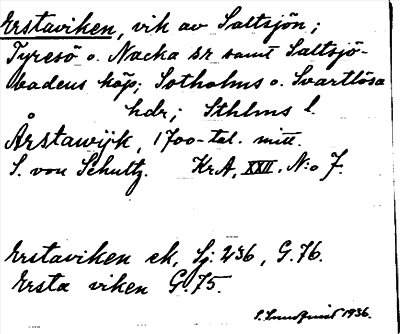 Erstaviken, vik av Saltsjön;
Tyresö o. Nacka sr samt Saltsjö-
badens köp; Sotholms o. Svartlösa
hdr; Sthlms l.
Årstawijk, 1700-tal. mitt.
S. von Schultz. KrA, XXII. N:o 7.
Erstaviken ek, Sj: 236, G. 76.
Ersta viken G. 75.
S. Lundqvist 1936.